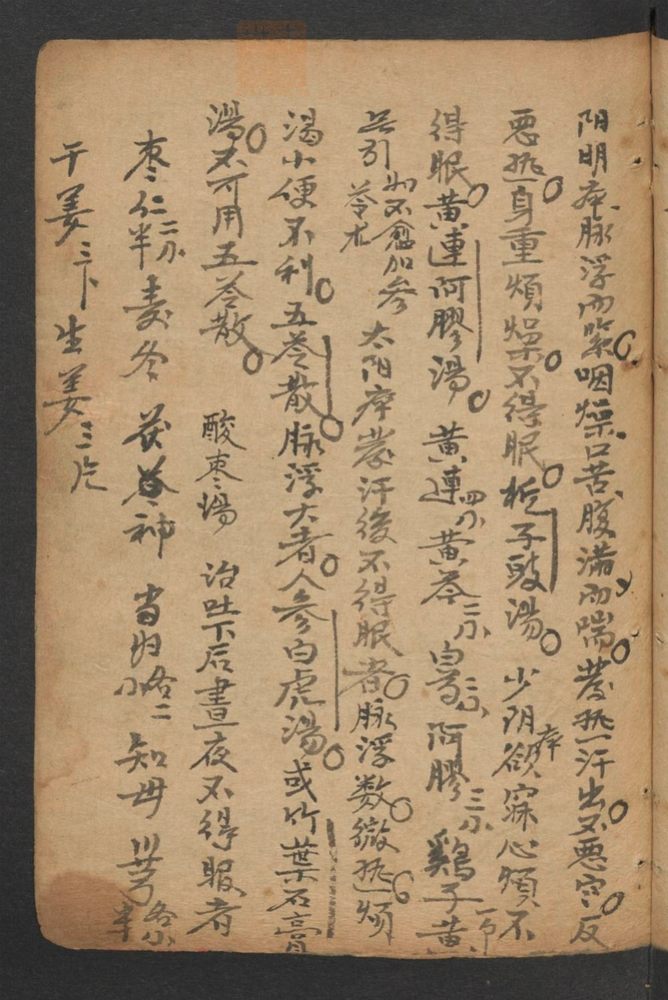 阳明症脉浮而紧咽燥口苦腹满而喘發热汗出不恶寒反
恶热身重煩燥不得眠梔子豉湯少阴症欲寐心煩不
得眠黄連阿膠湯黄連四小黄芩二小白芍二小阿膠三小鷄子黄一个
另引如不愈加参苓朮太阳症發汗後不得眠者脉浮数微热煩
渴小便不利五苓散脉浮大者人参白虎湯或竹葉石膏
湯不可用五苓散酸枣湯治吐下后晝夜不得眠者
枣仁二小半麦冬茯神当归各二小知母川芎各小半
干姜三卜生姜三片